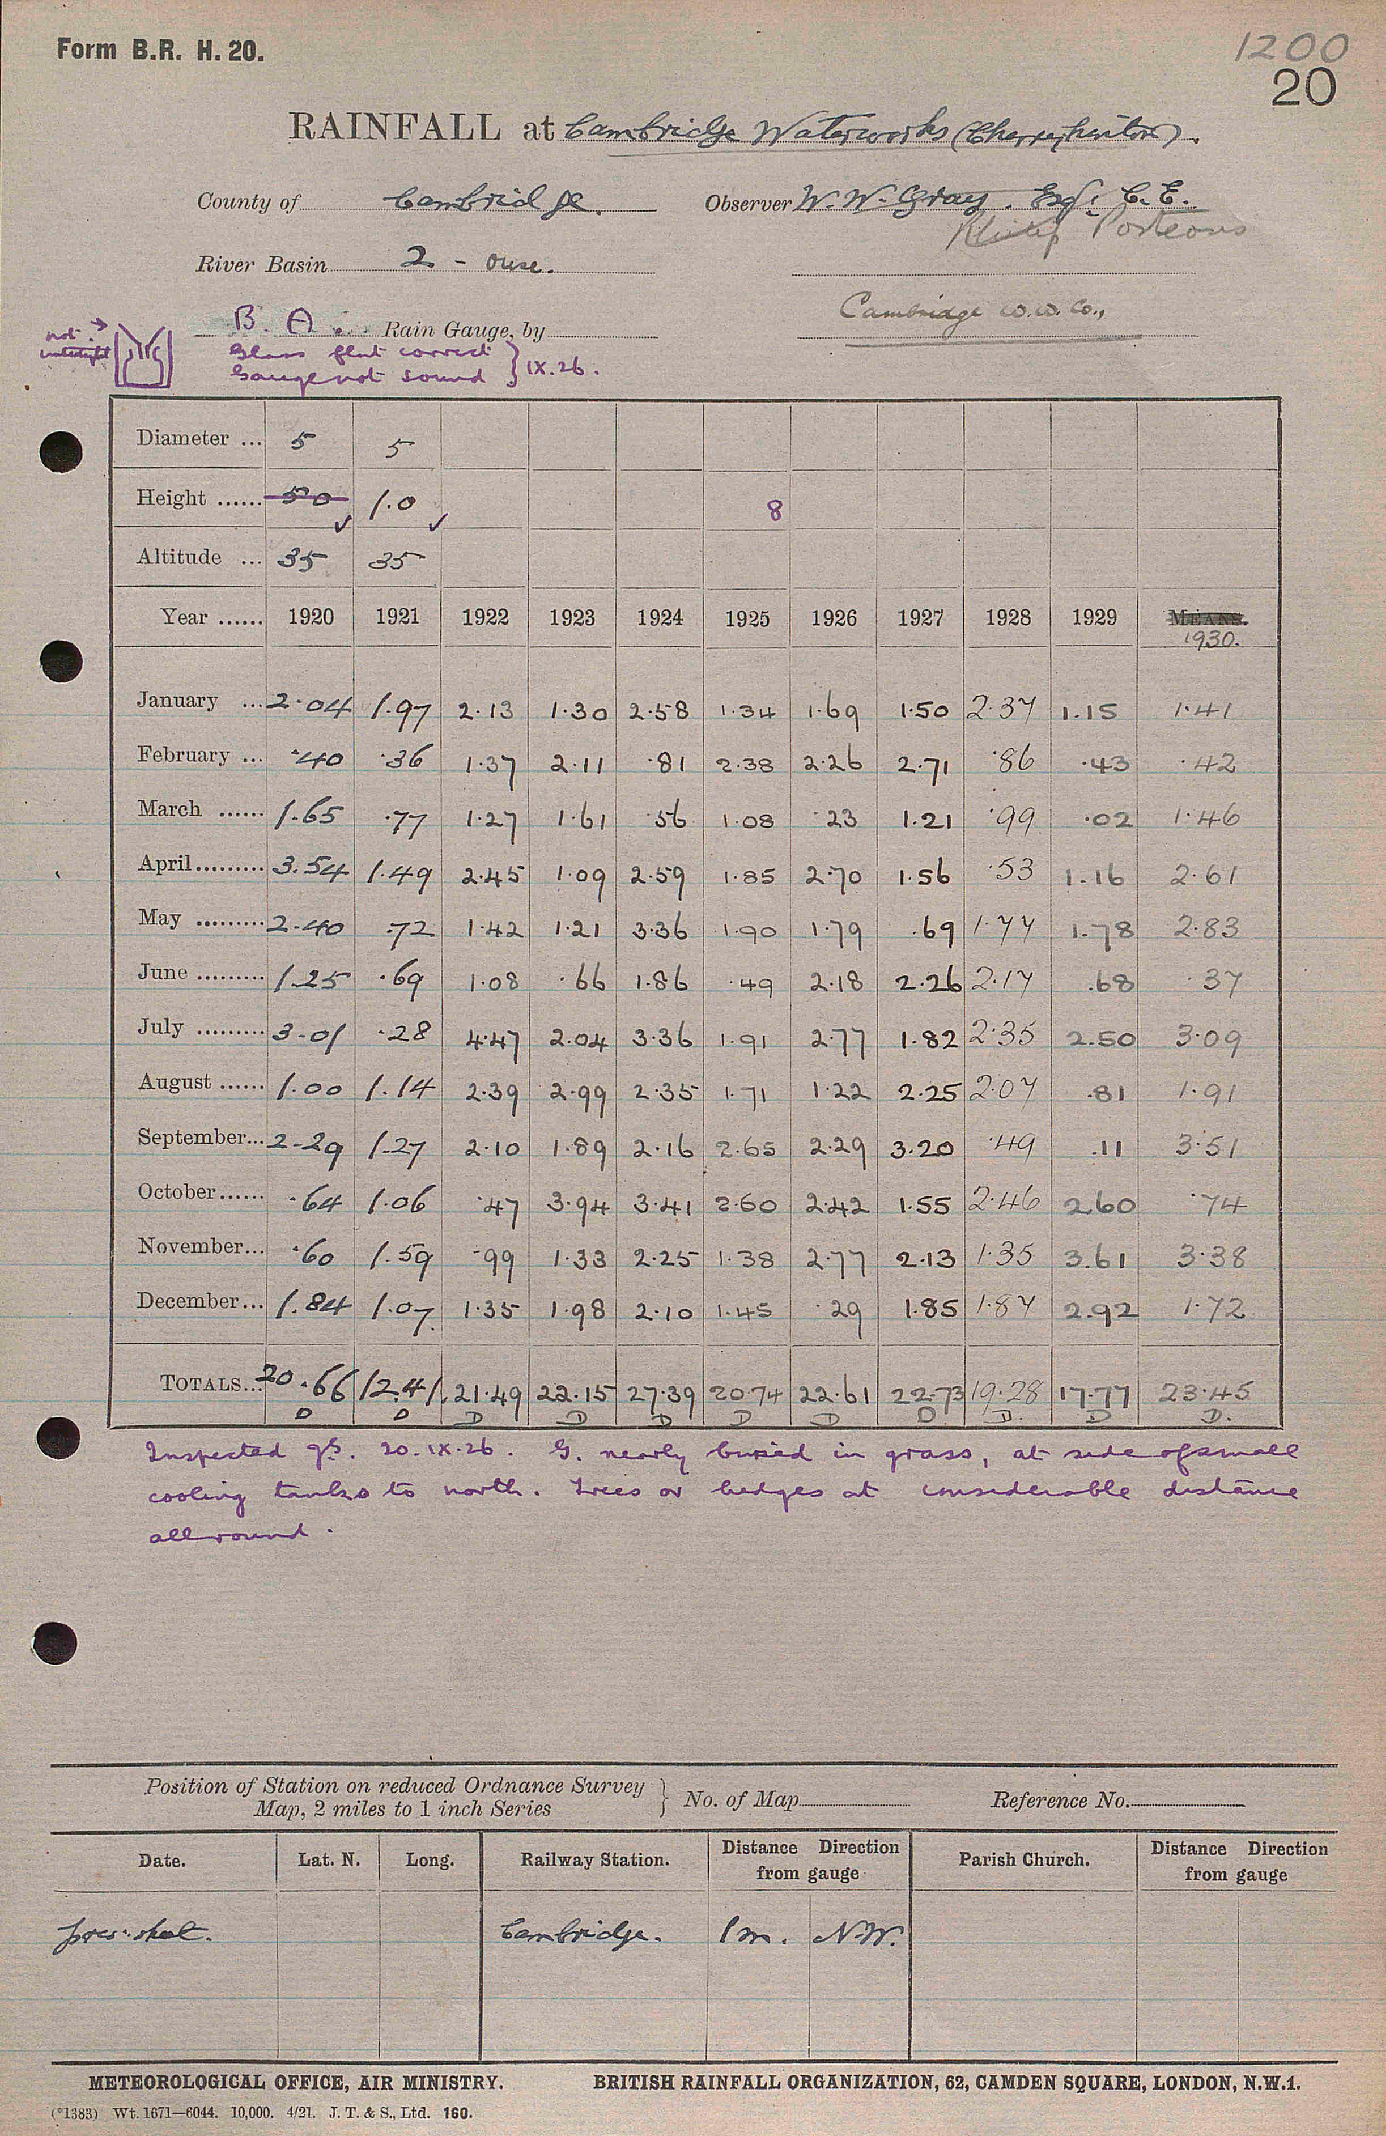 Form B.R. H. 20.
1200
20
RAINFALL at Cambridge Waterworks (Cherryhinton).
County of Cambridge. Observer W. W. Gray. Esq. C. E.
Philip Porteous
River Basin 2 - Ouse.
Cambridge W.W. Co.,
B. A. Rain Gauge, by
not watertight
Glass flat correct } IX.26.
Gauge not sound
Diameter ... 5 5
Height ...... 50 1.0 8
Altitude ... 35 35
Year ...... 1920 1921 1922 1923 1924 1925 1926 1927 1928 1929 MEANS. 1930.
January ... 2.04 1.97 2.13 1.30 2.58 1.34 1.69 1.50 2.37 1.15 1.41
February ... .40 .36 1.37 2.11 .81 2.38 2.26 2.71 .86 .43 .42
March ...... 1.65 .77 1.27 1.61 .56 1.08 .23 1.21 .99 .02 1.46
April ......... 3.54 1.49 2.45 1.09 2.59 1.85 2.70 1.56 .53 1.16 2.61
May ......... 2.40 .72 1.42 1.21 3.36 1.90 1.79 .69 1.77 1.78 2.83
June ......... 1.25 .69 1.08 .66 1.86 .49 2.18 2.26 2.17 .68 .37
July ......... 3.01 .28 4.47 2.04 3.36 1.91 2.77 1.82 2.35 2.50 3.09
August ...... 1.00 1.14 2.39 2.99 2.35 1.71 1.22 2.25 2.07 .81 1.91
September... 2.29 1.27 2.10 1.89 2.16 2.65 2.29 3.20 .49 .11 3.51
October...... .64 1.06 .47 3.94 3.41 2.60 2.42 1.55 2.46 2.60 .74
November... .60 1.59 .99 1.33 2.25 1.38 2.77 2.13 1.35 3.61 3.38
December... 1.84 1.07 1.35 1.98 2.10 1.45 .29 1.85 1.87 2.92 1.72
TOTALS... 20.66 12.41 21.49 22.15 27.39 20.74 22.61 22.73 19.28 17.77 23.45
D D D D D D D D D. D D.
Inspected 20.IX.26. G. nearly buried in grass, at side of small
cooling tanks to north. Trees or hedges at considerable distance
all round.
Position of Station on reduced Ordnance Survey } No. of Map Reference No.
Map, 2 miles to 1 inch Series
Date. Lat. N. Long. Railway Station. Distance Direction from gauge Parish Church. Distance Direction from gauge
prev. sheet. Cambridge. 1 m. N.W.
METEOROLOGICAL OFFICE, AIR MINISTRY. BRITISH RAINFALL ORGANIZATION, 62, CAMDEN SQUARE, LONDON, N.W.1.
(*1383) Wt. 1671—6044. 10,000. 4/21. J. T. & S., Ltd. 160.